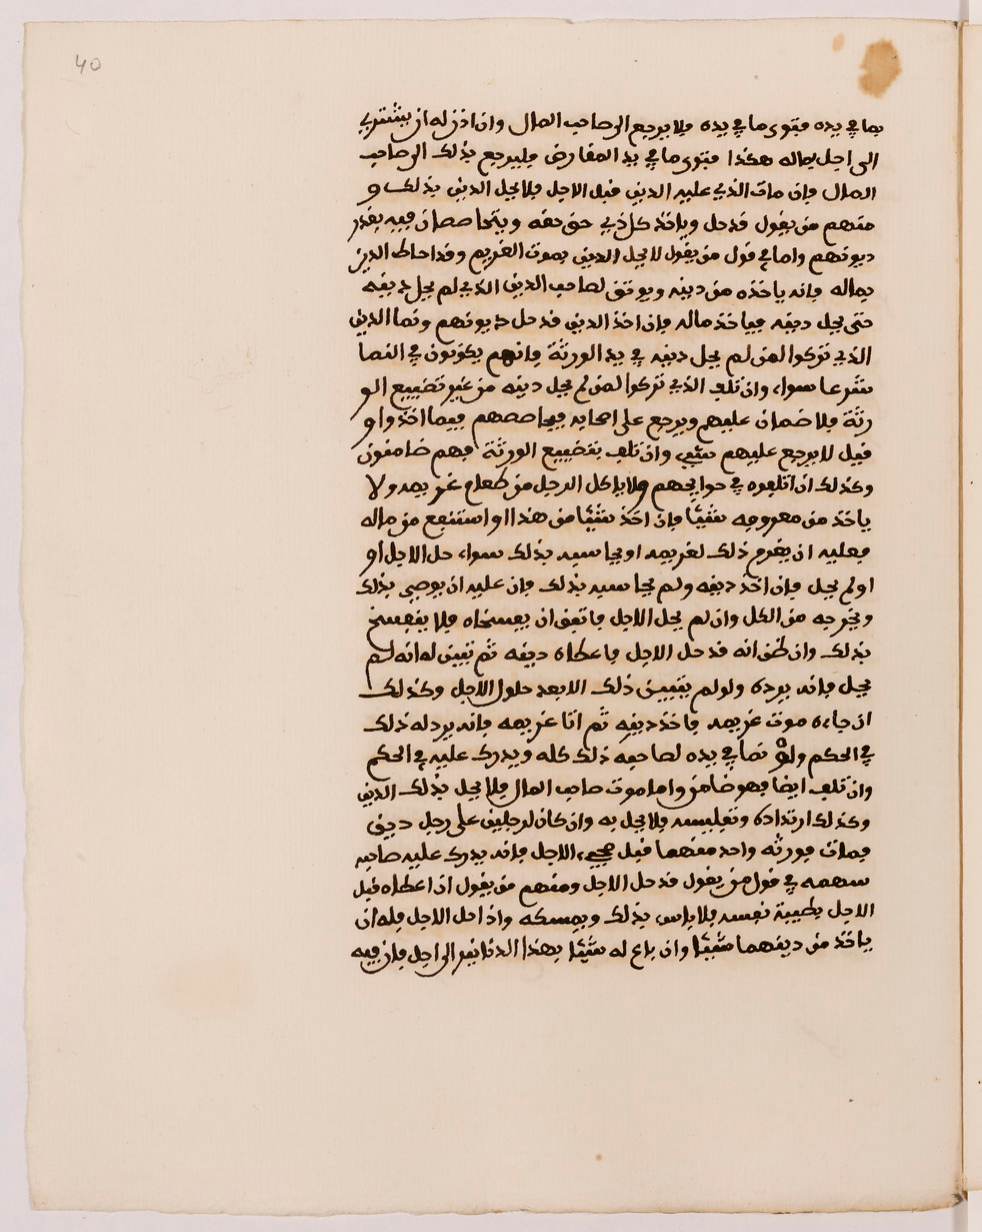 40
بما في يده فتوى ما في يده فلا يرجع الى صاحب المال وان اذن له ان يشتري
الى اجل بماله هكذا فتوى ما في يد المقارض فليرجع بذلك الى صاحب
المال فان مات الذي عليه الدين قبل الاجل فلا يحل الدين بذلك و
منهم من يقول قد حل وياخذ كل ذي حق حقه ويتحاصصان فيه بقدر
ديونهم واما في قول من يقول لا يحل الدين بموت الغريم وقد احاط الدين
بماله فانه ياخذه من دينه ويوقف لصاحب الدين الذي لم يحل دينه
حتى يحل دينه فياخذ ماله فان اخذ الدين قد حل ديونهم ونما الدين
الذي تركوا لمن لم يحل دينه في يد الورثة فانهم يكونون في النما
شرعا سواء وان تلف الذي تركوا لمن لم يحل دينه من غير تضييع الو
رثة فلا ضمان عليهم ويرجع على اصحابه فيحاصصهم فيما اخذوا و
قيل لا يرجع عليهم بشيء وان تلف بتضييع الورثة فهم ضامنون
وكذلك ان اتلفوه في حوايجهم ولا ياكل الرجل من طعام غريمه ولا
ياخذ من معروفه شيئا فان اخذ شيئا من هذا او استنفع من ماله
فعليه ان يغرم ذلك لغريمه او يحاسبه بذلك سواء حل الاجل أو
او لم يحل فان اخذ دينه ولم يحاسبه بذلك فان عليه ان يوصي بذلك
ويخرجه من الكل وان لم يحل الاجل فاتفق ان يفسخاه فلا ينفسخ
بذلك وان ظن انه قد حل الاجل فاعطاه دينه ثم تبين له انه لم
يحل فانه يرده ولو لم يتبين ذلك الا بعد حلول الاجل وكذلك
ان جاءه موت غريمه فاخذ دينه ثم اتا غريمه فانه يرد له ذلك
في الحكم ولو نما في يده لصاحبه ذلك كله ويدرك عليه في الحكم
وان تلف ايضا فهو ضامن واما موت صاحب المال فلا يحل بذلك الدين
وكذلك ارتداده وتفليسه فلا يحل به وان كان لرجلين على رجل دين
فمات فورثه واحد منهما قبل مجيء الاجل فانه يدرك عليه صاحبه
سهمه في قول من يقول قد حل الاجل ومنهم من يقول ان اعطاه قبل
الاجل بطيبة نفسه فلا باس بذلك ويمسكه واذا حل الاجل فله ان
ياخذ من دينهما شيئا وان باع له شيئا بهذا الدنانير الى اجل فان فيه